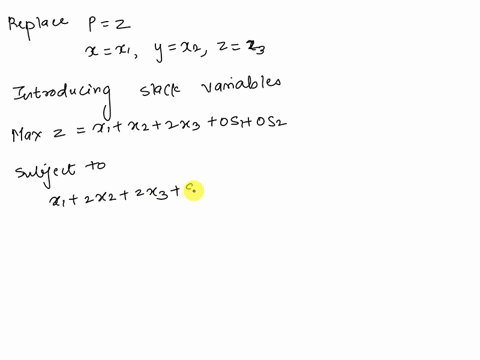 Replace P = Z
x = x1, y = x2, z = x3
Introducing slack variables
Max z = x1 + x2 + 2x3 + 0S1 + 0S2
Subject to
x1 + 2x2 + 2x3 +